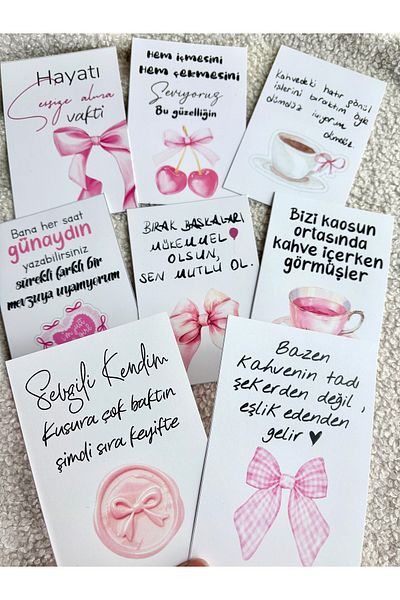 Hayatı
Sessize alma
vakti
Hem içmesini
Hem çekmesini
Seviyoruz
Bu güzelliğin
Kahvedeki hatır gönül
işlerini bıraktım öyle
ölümsüz içiyorum
Bana her saat
günaydın
yazabilirsiniz
sürekli farklı bir
mevzuya uyanıyorum
BIRAK BAŞKALARI
MÜKEMMEL
OLSUN,
SEN MUTLU OL.
Bizi kaosun
ortasında
kahve içerken
görmüşler
Sevgili Kendim
Kusura çok baktın
şimdi sıra keyifte
Bazen
Kahvenin tadı
şekerden değil,
eşlik edenden
gelir ♥